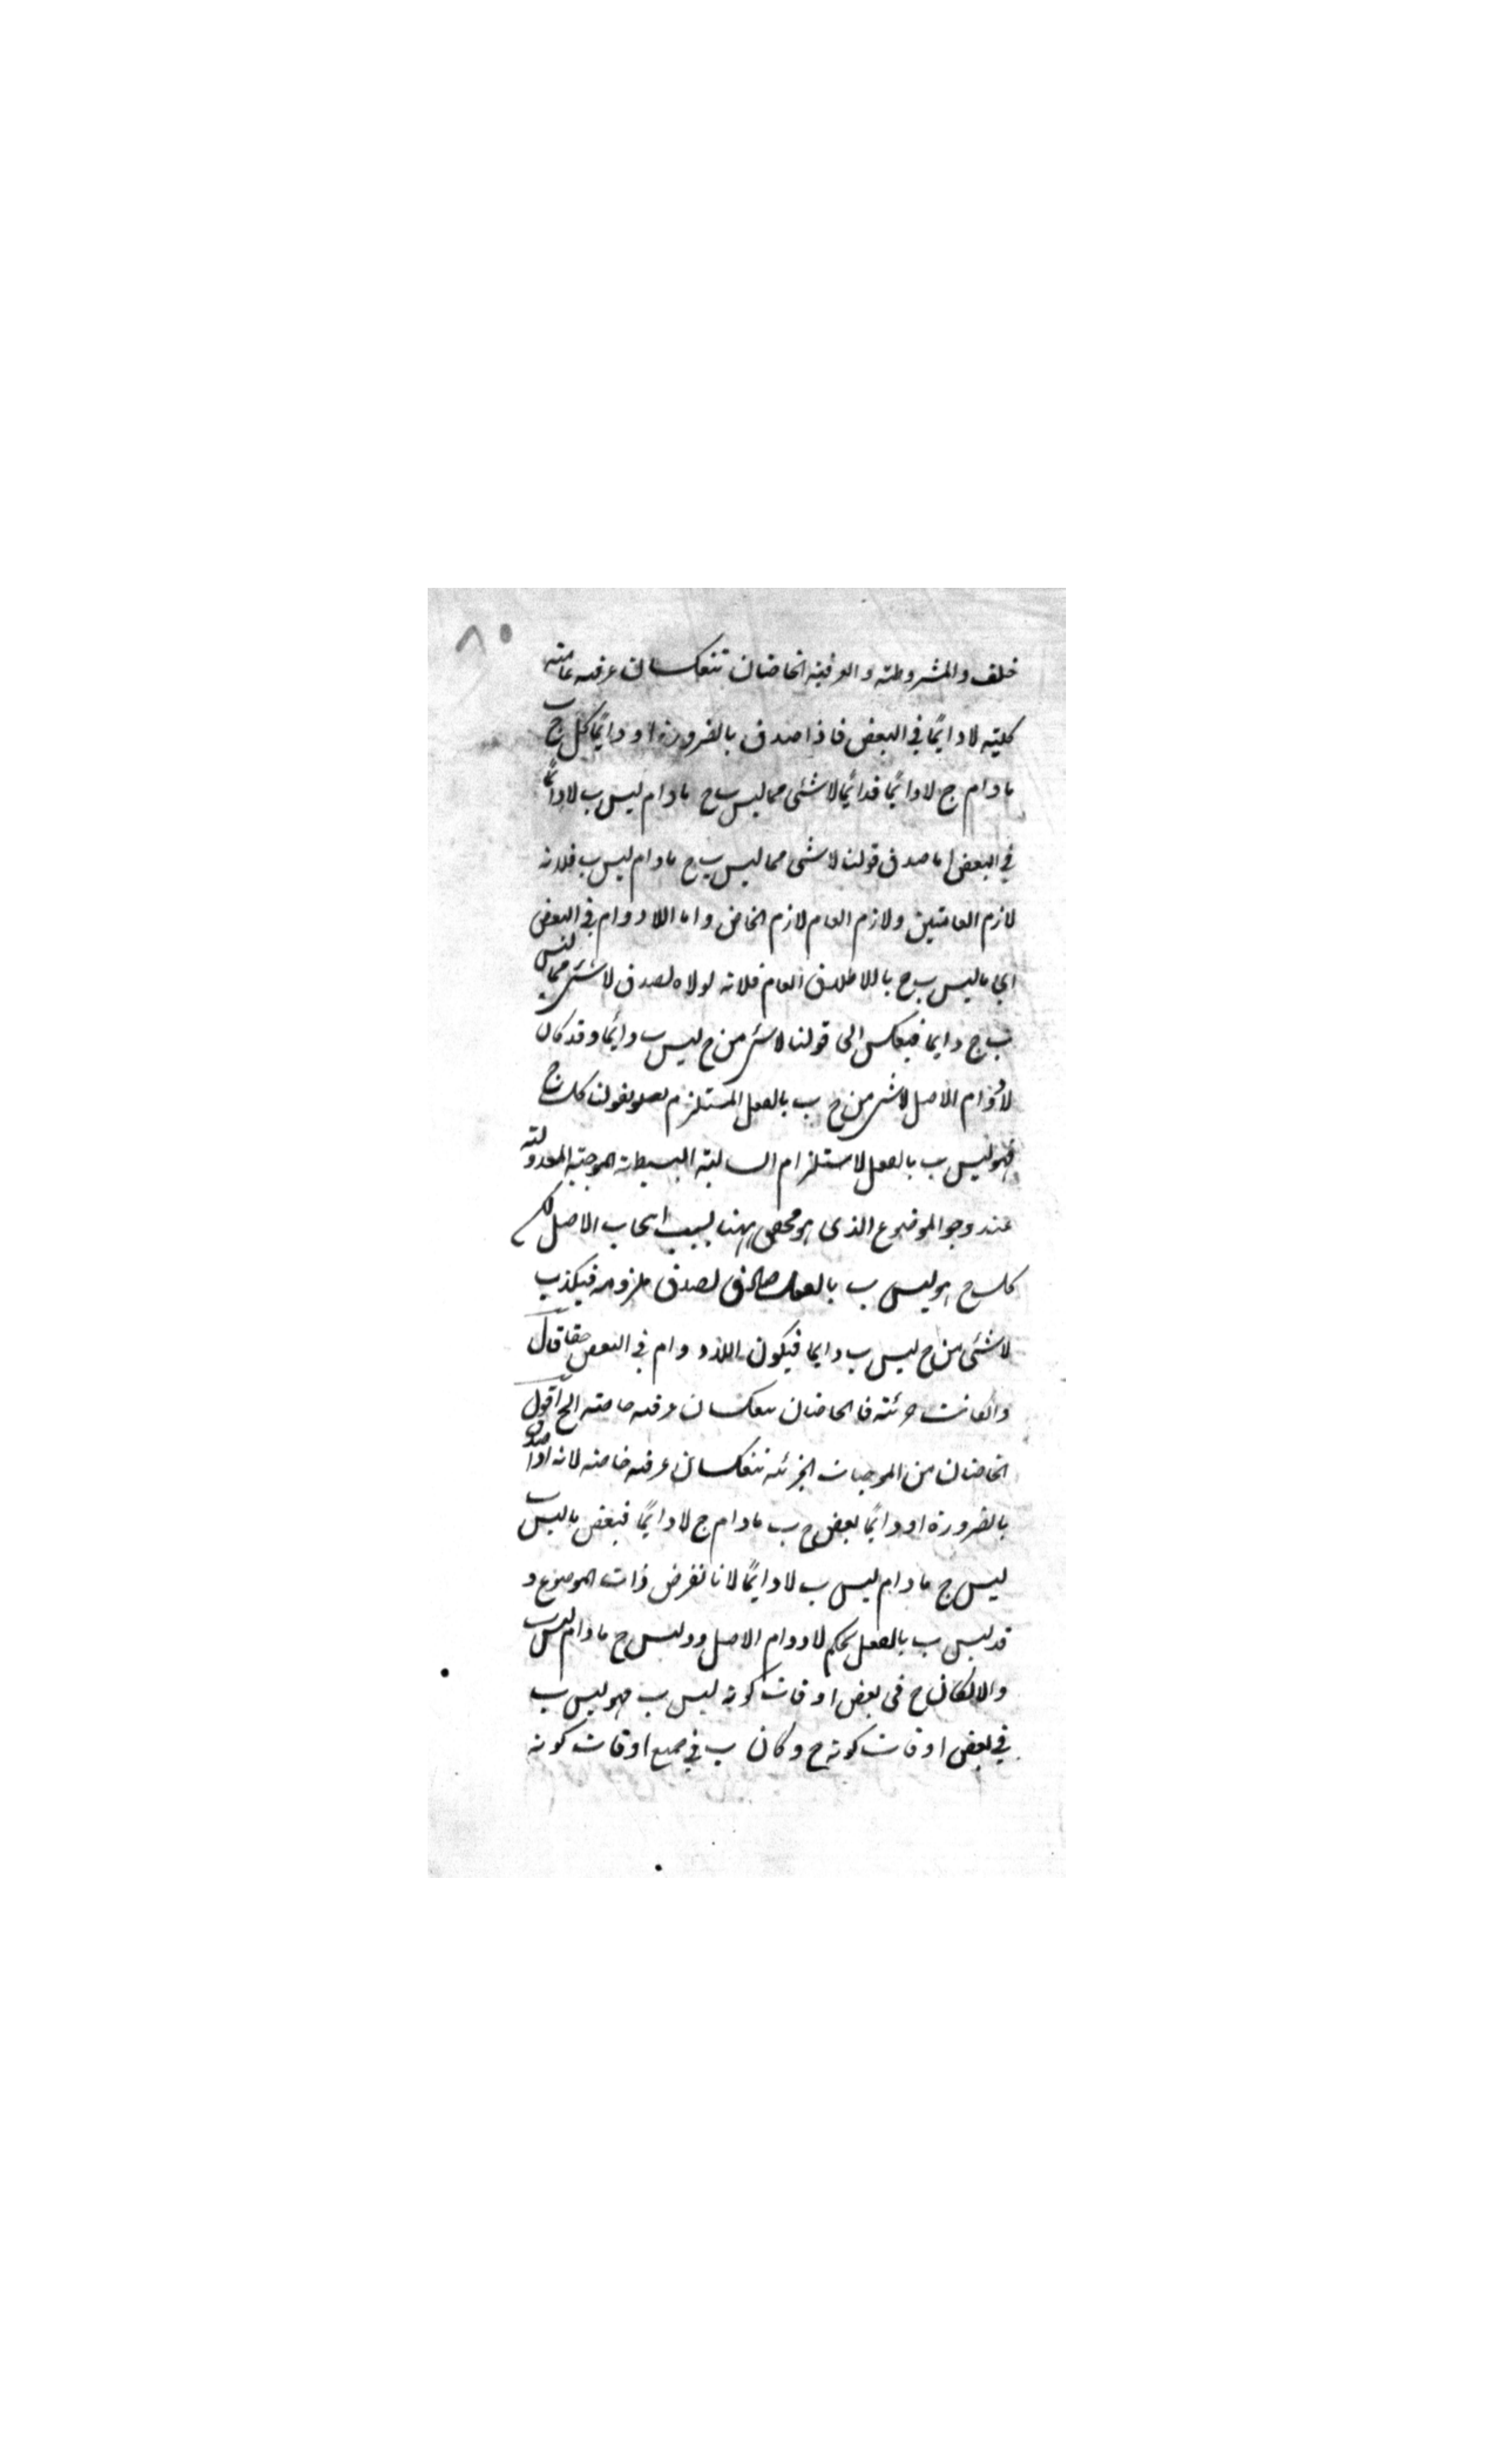 ٨٠
خلف والمشروطة والعرفية الخاصتان تنعكسان عرفية عامة
كلية لا دايمًا في البعض فاذا صدق بالضرورة او دايمًا كل ج ب
ما دام ج لا دايمًا فدائمًا لا شئ مما ليس ب ج ما دام ليس ب لا دائمًا
في البعض اما صدق قولنا لا شئ مما ليس ب ج ما دام ليس ب فلانه
لازم العامتين ولازم العام لازم الخاص واما اللا دوام في البعض
اي ما ليس ب ج بالاطلاق العام فلانه لولاه لصدق لا شئ مما ليس
ب ج دايما فينعكس الى قولنا لا شئ من ج ليس ب دائما وقد كان
لا دوام الاصل لا شئ من ج ب بالفعل المستلزم لقولنا كل ج
فهو ليس ب بالفعل لاستلزام السالبة البسيطة الموجبة المعدولة
عند وجو الموضوع الذي هو محقق ههنا بسبب ايجاب الاصل لكن
كل ج هو ليس ب بالفعل صادق لصدق ملزومه فيكذب
لا شئ من ج ليس ب دايما فيكون اللا دوام في البعض حقا قال
وانكانت جزئية فالخاصتان تنعكسان عرفية خاصة الخ اقول
الخاصتان من الموجبات الجزئية تنعكسان عرفية خاصة لانه اذا صدق
بالضرورة او دائمًا بعض ج ب ما دام ج لا دايمًا فبعض ما ليس ب
ليس ج ما دام ليس ب لا دايمًا لانا نفرض ذات الموضوع د
فد ليس ب بالفعل بحكم لا دوام الاصل ود ليس ج ما دام ليس ب
والا لكان ج في بعض اوقات كونه ليس ب فهو ليس ب
في بعض اوقات كونه ج وكان ب في جميع اوقات كونه